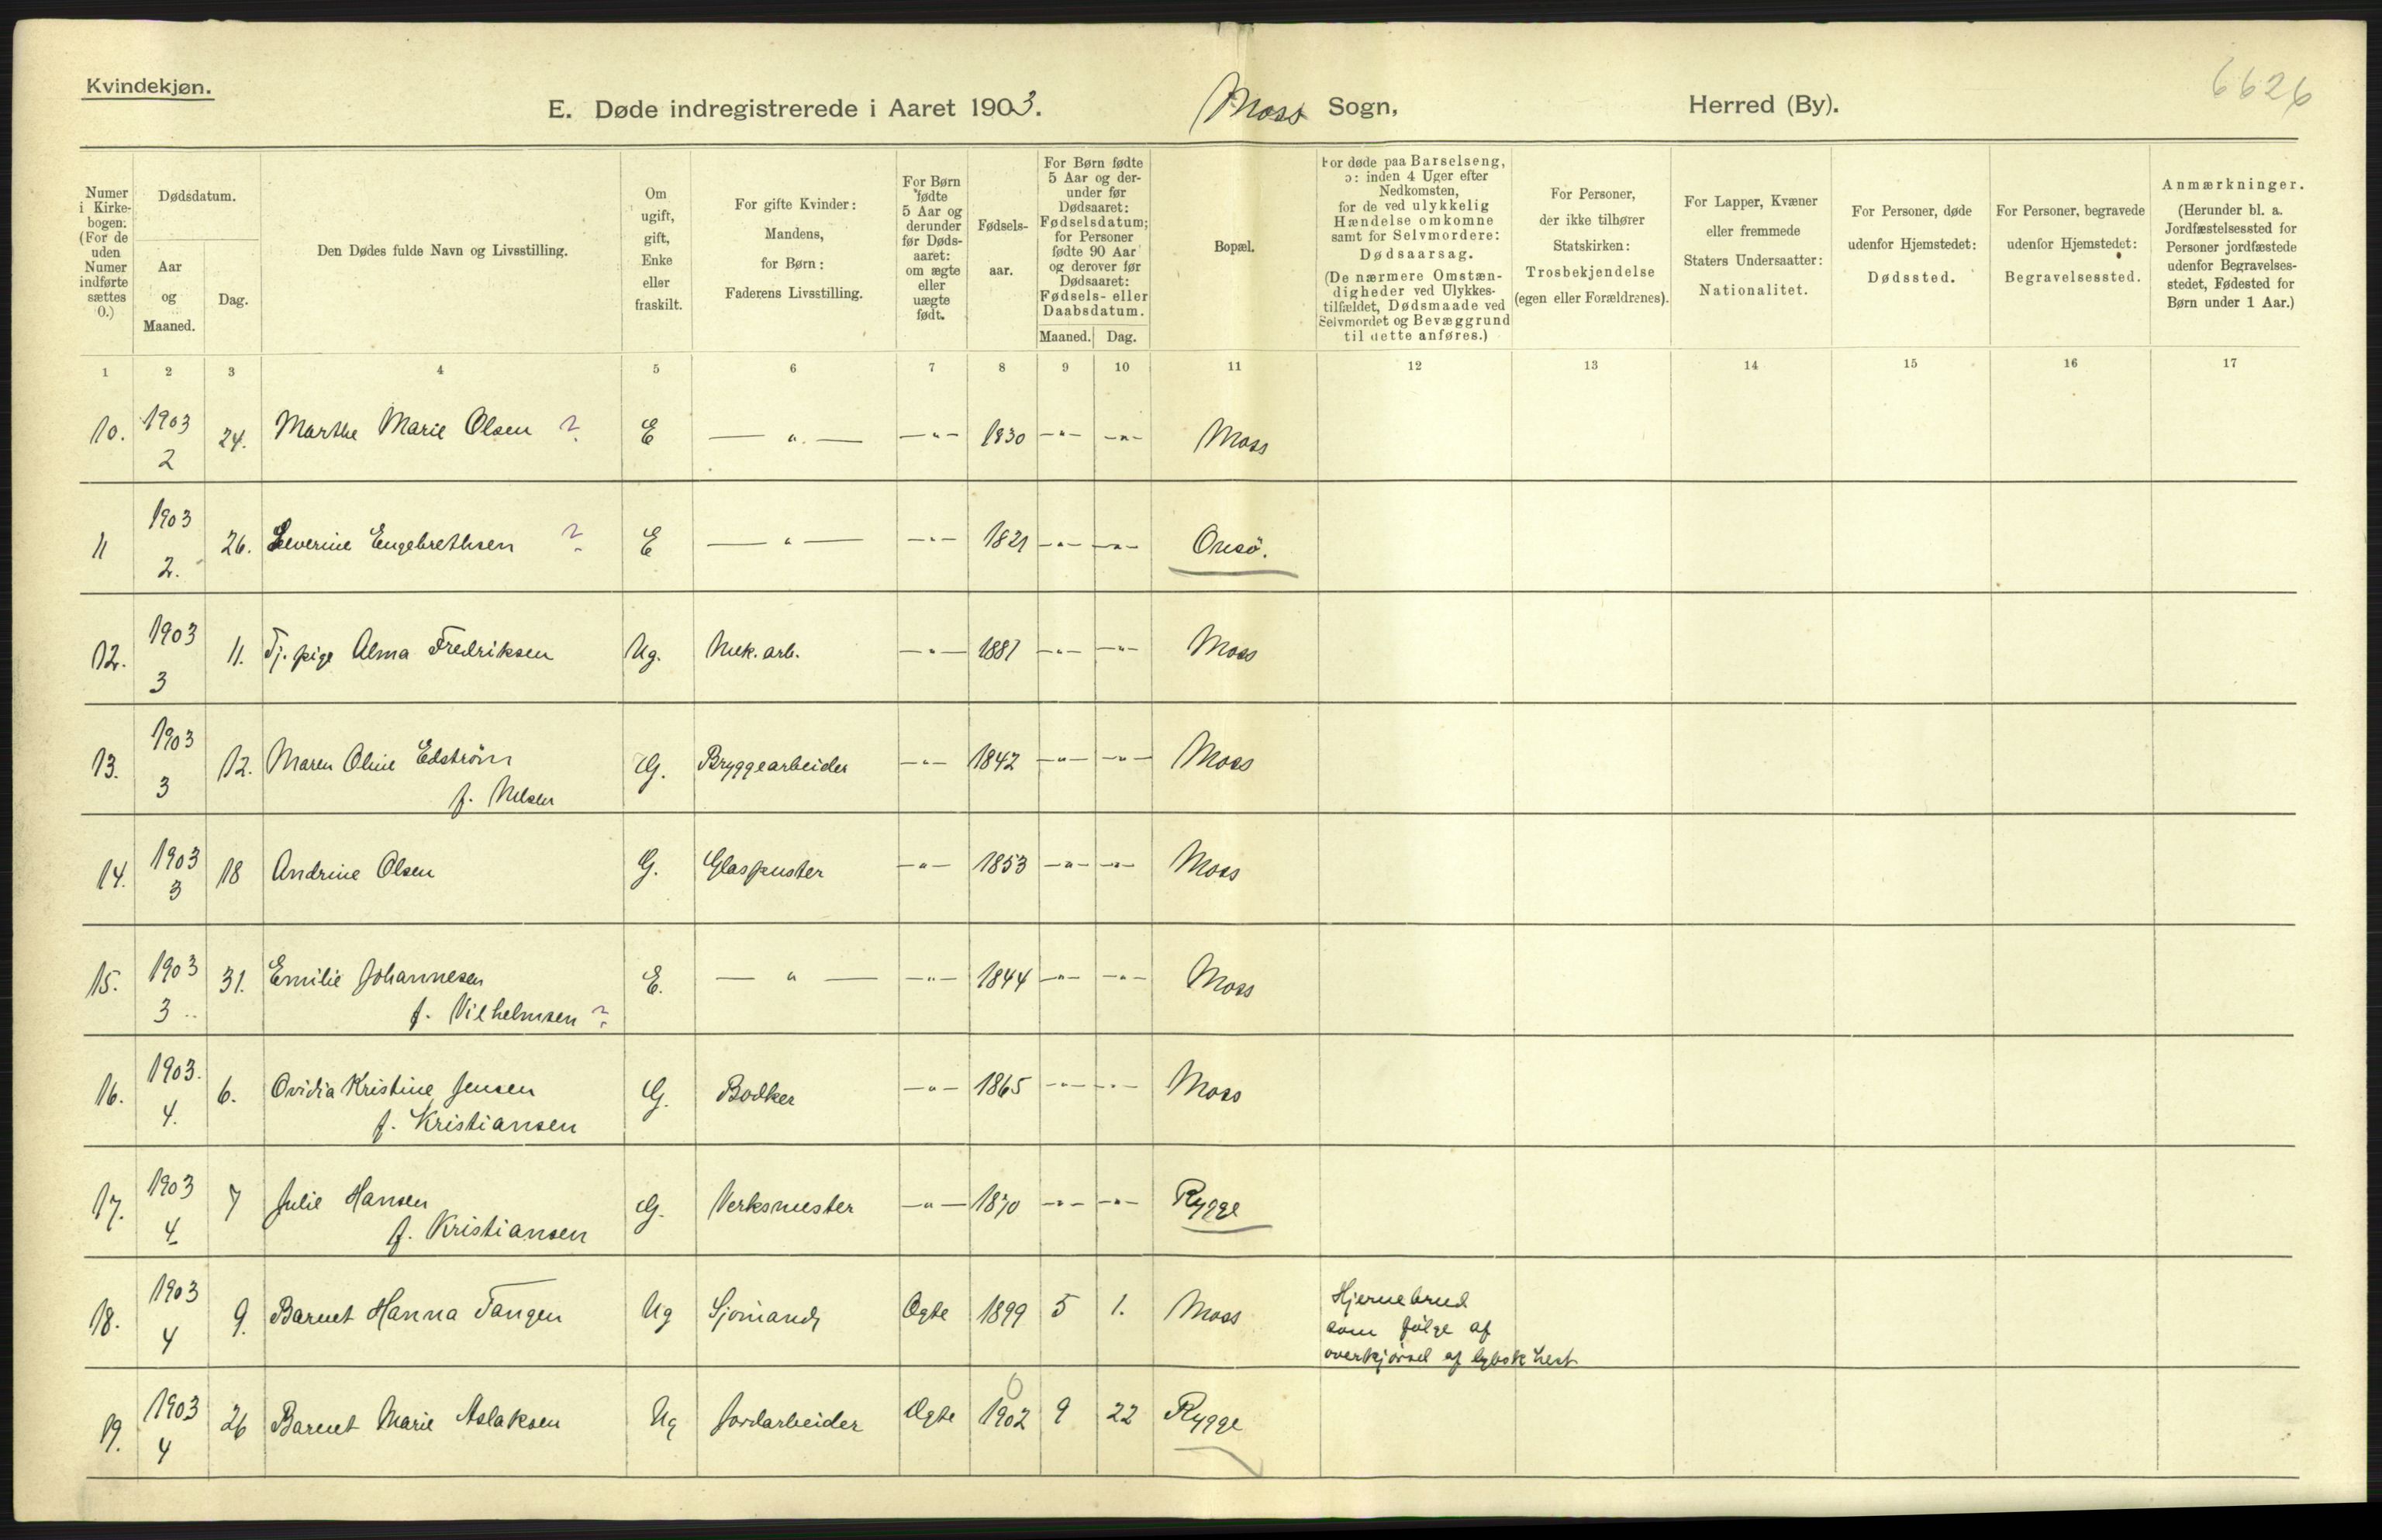 Kvindekjøn.
6626
E. Døde indregistrerede i Aaret 1903. Moss Sogn, Herred (By).
Numer i Kirkebogen: (For de uden Numer indførte sættes 0.)
Dødsdatum.
Aar og Maaned.
Dag.
Den Dødes fulde Navn og Livsstilling.
Om ugift, gift, Enke eller fraskilt.
For gifte Kvinder: Mandens, for Børn: Faderens Livsstilling.
For Børn fødte 5 Aar og derunder før Dødsaaret: om ægte eller uægte født.
Fødselsaar.
For Børn fødte 5 Aar og derunder før Dødsaaret: Fødselsdatum; for Personer fødte 90 Aar og derover før Dødsaaret: Fødsels- eller Daabsdatum.
Maaned. Dag.
Bopæl.
For døde paa Barselseng, ɔ: inden 4 Uger efter Nedkomsten, for de ved ulykkelig Hændelse omkomne samt for Selvmordere: Dødsaarsag. (De nærmere Omstændigheder ved Ulykkestilfældet, Dødsmaade ved Selvmordet og Bevæggrund til dette anføres.)
For Personer, der ikke tilhører Statskirken: Trosbekjendelse (egen eller Forældrenes).
For Lapper, Kvæner eller fremmede Staters Undersaatter: Nationalitet.
For Personer, døde udenfor Hjemstedet: Dødssted.
For Personer, begravede udenfor Hjemstedet: Begravelsessted.
Anmærkninger. (Herunder bl. a. Jordfæstelsessted for Personer jordfæstede udenfor Begravelsesstedet, Fødested for Børn under 1 Aar.)
1 2 3 4 5 6 7 8 9 10 11 12 13 14 15 16 17
10. 1903 2 24. Marthe Marie Olsen ? E — " — — " — 1830 — " — — " — Moss
11 1903 2. 26. Severine Engebrethsen ? E — " — — " — 1821 — " — — " — Onsö.
12. 1903 3 11. Tj. pige Alma Fredriksen Ug. Mek. arb. — " — 1881 — " — — " — Moss
13. 1903 3 12. Maren Oline Edström G. Bryggearbeider — " — 1842 — " — — " — Moss
f. Nilsen
14. 1903 3 18 Andrine Olsen G. Glaspuster — " — 1853 — " — — " — Moss
15. 1903 3 31. Emilie Johannesen E. — " — — " — 1844 — " — — " — Moss
f. Vilhelmsen ?
16. 1903. 4. 6. Ovidia Kristine Jensen G. Bødker — " — 1865 — " — — " — Moss
f. Kristiansen
17. 1903 4 7 Julie Hansen G. Verksmester — " — 1870 — " — — " — Rygge
f. Kristiansen
18. 1903 4 9. Barnet Hanna Tangen Ug Sjømand, Ægte 1899 5 1. Moss Hjernebrud
som følge af
overkjörsel af løbsk hest
19. 1903 4 26 Barnet Marie Aslaksen Ug Jordarbeider Ægte 1902 0 9 22 Rygge